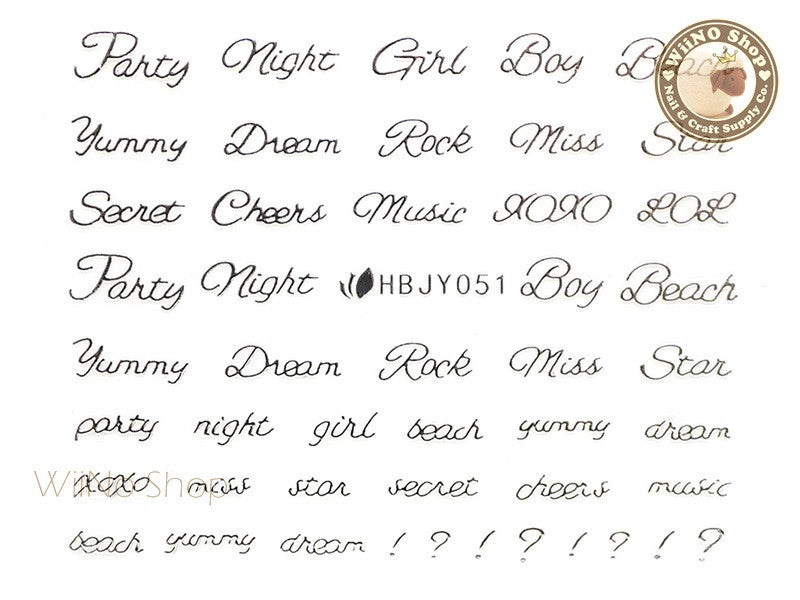 Party Night Girl Boy Beach
WiiNO Shop
Nail & Craft Supply Co.
Yummy Dream Rock Miss Star
Secret Cheers Music XOXO LOL
Party Night HBJY051 Boy Beach
Yummy Dream Rock Miss Star
party night girl beach yummy dream
XOXO miss star secret cheers music
WiiNO Shop
beach yummy dream ! ? ! ? ! ? ! ?